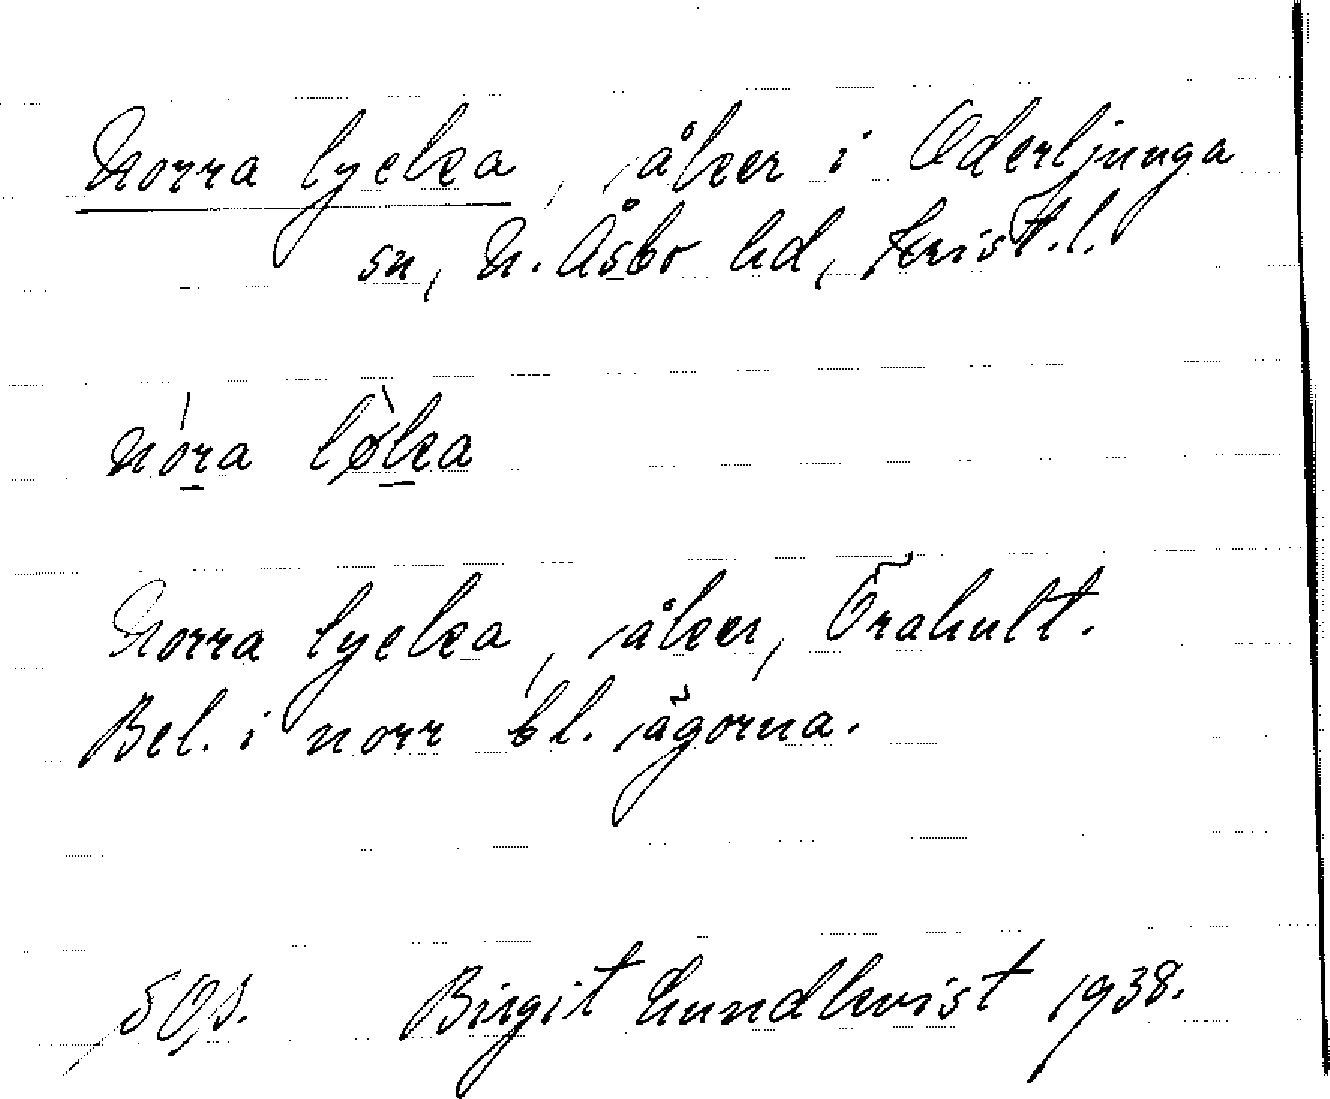 Norra lycka, åker i Oderljunga
sn, N. Åsbo hd, Krist. l.
nóra lø̀ka
Norra lycka, åker, Örahult.
Bel. i norr bl. ägorna.
Birgit Lundkvist 1938.